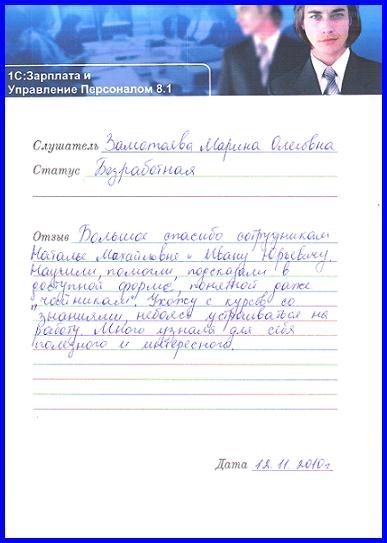 1С:Зарплата и
Управление Персоналом 8.1
Слушатель Замотаева Марина Олеговна
Статус Безработная
Отзыв Большое спасибо сотрудникам
Наталье Михайловне и Ивану Юрьевичу.
Научили, помогли, подсказали в
доступной форме, понятной даже
"чайникам". Ухожу с курсов со
знаниями, небоясь устраиваться на
работу. Много узнала для себя
полезного и интересного.
Дата 12.11.2010г